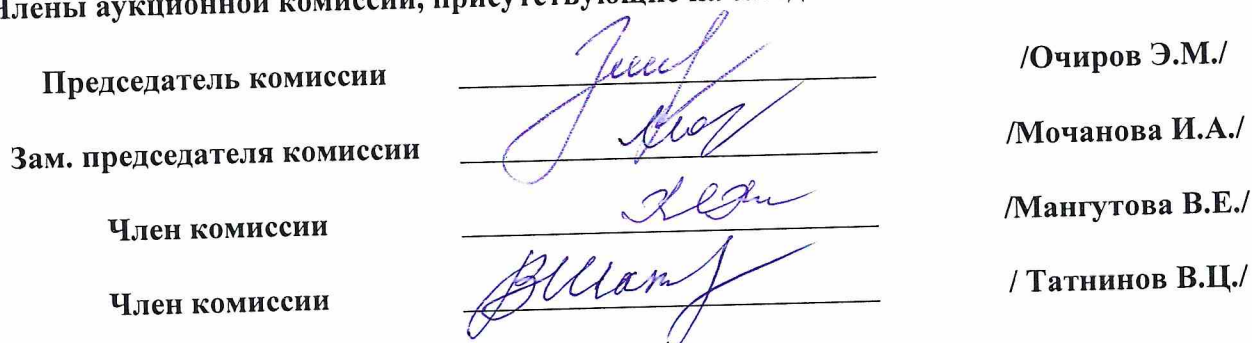 Члены аукционной комиссии, присутствующие на
Председатель комиссии /Очиров Э.М./
Зам. председателя комиссии /Мочанова И.А./
Член комиссии /Мангутова В.Е./
Член комиссии / Татнинов В.Ц./